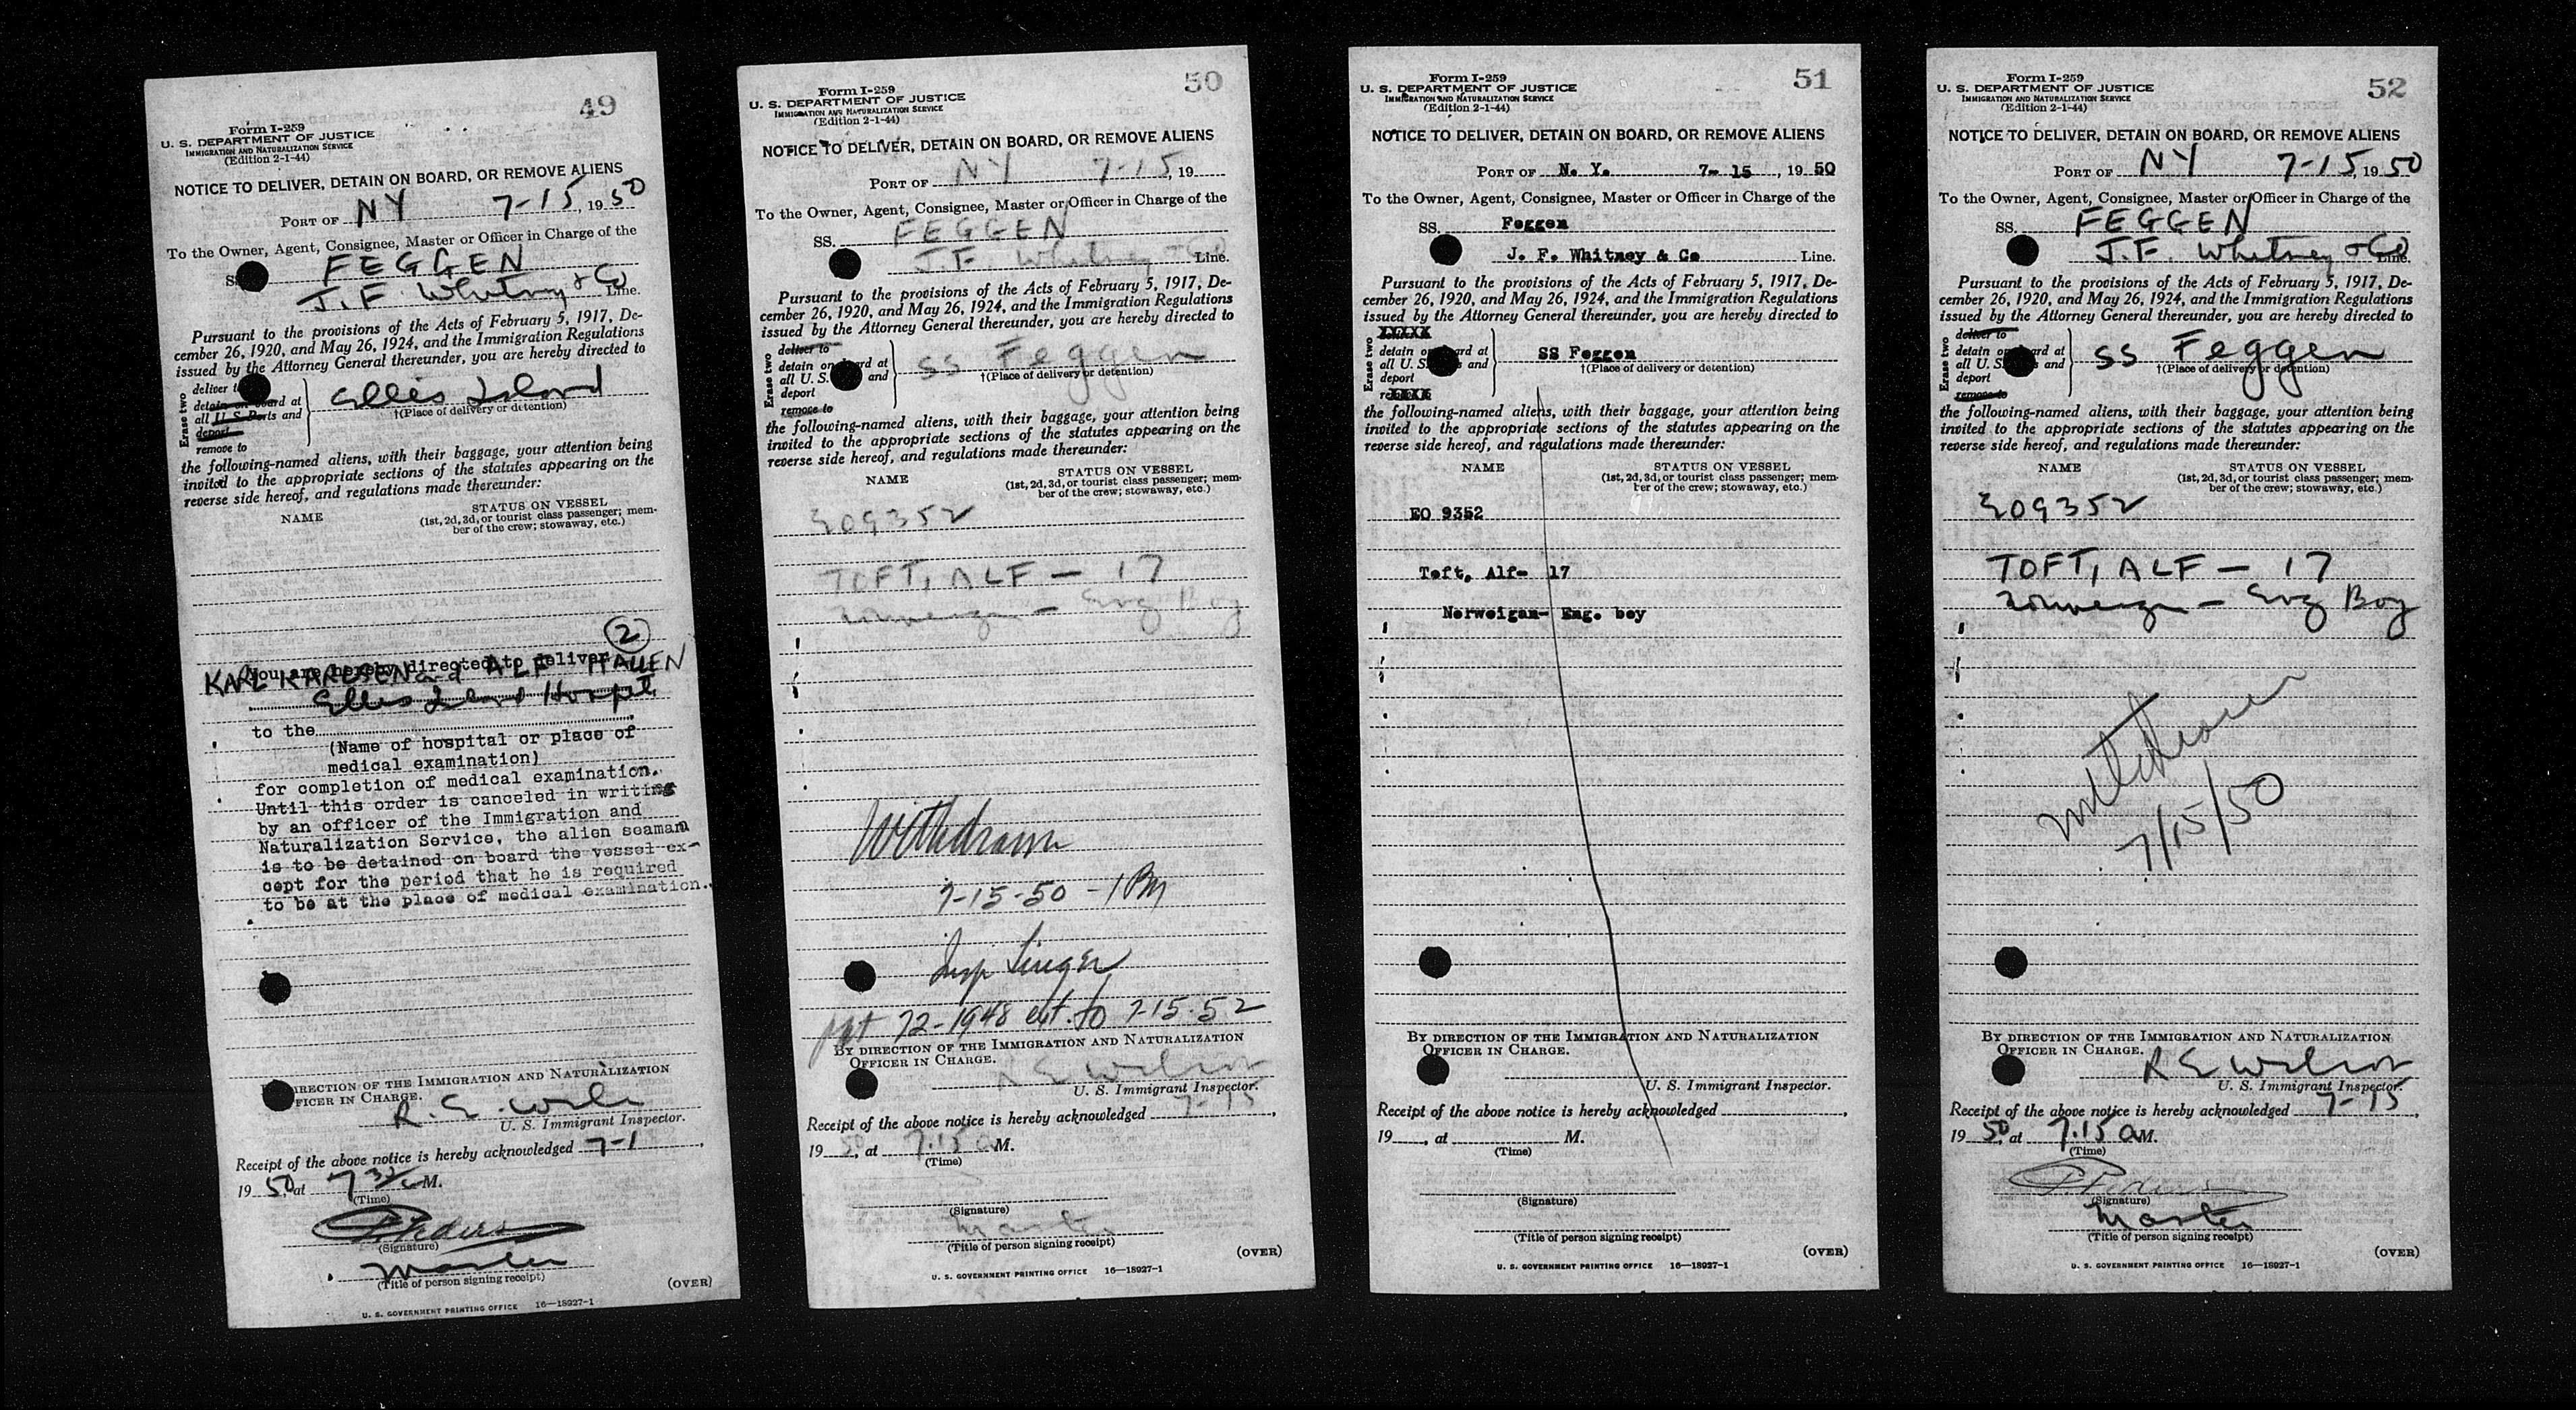 49
Form I-259
U. S. DEPARTMENT OF JUSTICE
IMMIGRATION AND NATURALIZATION SERVICE
(Edition 2-1-44)
NOTICE TO DELIVER, DETAIN ON BOARD, OR REMOVE ALIENS
PORT OF NY 7-15, 1950
To the Owner, Agent, Consignee, Master or Officer in Charge of the
SS. FEGGEN
J.F. Whitney & Co Line.
Pursuant to the provisions of the Acts of February 5, 1917, De-
cember 26, 1920, and May 26, 1924, and the Immigration Regulations
issued by the Attorney General thereunder, you are hereby directed to
Erase two
deliver to
detain on board at
all U. S. Ports and
deport
remove to
Ellis Island
†(Place of delivery or detention)
the following-named aliens, with their baggage, your attention being
invited to the appropriate sections of the statutes appearing on the
reverse side hereof, and regulations made thereunder:
NAME STATUS ON VESSEL
(1st, 2d, 3d, or tourist class passenger; mem-
ber of the crew; stowaway, etc.)
2
You are hereby directed to deliver
KARL KARLSEN and ALF HALLEN
Ellis Island Hospital
to the
(Name of hospital or place of
medical examination)
for completion of medical examination.
Until this order is canceled in writing
by an officer of the Immigration and
Naturalization Service, the alien seaman
is to be detained on board the vessel ex-
cept for the period that he is required
to be at the place of medical examination.
BY DIRECTION OF THE IMMIGRATION AND NATURALIZATION
OFFICER IN CHARGE.
R. E.
U. S. Immigrant Inspector.
Receipt of the above notice is hereby acknowledged 7-1,
1950, at 7 30 a M.
(Time)
(Signature)
Master
(Title of person signing receipt)
(OVER)
U. S. GOVERNMENT PRINTING OFFICE 16—18927-1
50
Form I-259
U. S. DEPARTMENT OF JUSTICE
IMMIGRATION AND NATURALIZATION SERVICE
(Edition 2-1-44)
NOTICE TO DELIVER, DETAIN ON BOARD, OR REMOVE ALIENS
PORT OF NY 7-15, 19
To the Owner, Agent, Consignee, Master or Officer in Charge of the
SS. FEGGEN
J.F. Whitney & Co Line.
Pursuant to the provisions of the Acts of February 5, 1917, De-
cember 26, 1920, and May 26, 1924, and the Immigration Regulations
issued by the Attorney General thereunder, you are hereby directed to
Erase two
deliver to
detain on board at
all U. S. and
deport
remove to
SS Feggen
†(Place of delivery or detention)
the following-named aliens, with their baggage, your attention being
invited to the appropriate sections of the statutes appearing on the
reverse side hereof, and regulations made thereunder:
NAME STATUS ON VESSEL
(1st, 2d, 3d, or tourist class passenger; mem-
ber of the crew; stowaway, etc.)
EO 9352
TOFT, ALF — 17
Norwegian — Eng Boy
Withdrawn
7-15-50 - 1 PM
Insp Singer
ppt 72-1948 ext. to 7-15-52
BY DIRECTION OF THE IMMIGRATION AND NATURALIZATION
OFFICER IN CHARGE.
R E Wilson
U. S. Immigrant Inspector.
Receipt of the above notice is hereby acknowledged 7-15,
1950, at 7.15 a M.
(Time)
(Signature)
Master
(Title of person signing receipt)
(OVER)
U. S. GOVERNMENT PRINTING OFFICE 16—18927-1
51
Form I-259
U. S. DEPARTMENT OF JUSTICE
IMMIGRATION AND NATURALIZATION SERVICE
(Edition 2-1-44)
NOTICE TO DELIVER, DETAIN ON BOARD, OR REMOVE ALIENS
PORT OF N. Y. 7- 15, 1950
To the Owner, Agent, Consignee, Master or Officer in Charge of the
SS. Feggen
J. F. Whitney & Co Line.
Pursuant to the provisions of the Acts of February 5, 1917, De-
cember 26, 1920, and May 26, 1924, and the Immigration Regulations
issued by the Attorney General thereunder, you are hereby directed to
Erase two
XXXXX
detain on board at
all U. S. and
deport
XXXX
SS Feggen
†(Place of delivery or detention)
the following-named aliens, with their baggage, your attention being
invited to the appropriate sections of the statutes appearing on the
reverse side hereof, and regulations made thereunder:
NAME STATUS ON VESSEL
(1st, 2d, 3d, or tourist class passenger; mem-
ber of the crew; stowaway, etc.)
EO 9352
Toft, Alf- 17
Norweigan- Eng. boy
BY DIRECTION OF THE IMMIGRATION AND NATURALIZATION
OFFICER IN CHARGE.
U. S. Immigrant Inspector.
Receipt of the above notice is hereby acknowledged ,
19 , at M.
(Time)
(Signature)
(Title of person signing receipt)
(OVER)
U. S. GOVERNMENT PRINTING OFFICE 16—18927-1
52
Form I-259
U. S. DEPARTMENT OF JUSTICE
IMMIGRATION AND NATURALIZATION SERVICE
(Edition 2-1-44)
NOTICE TO DELIVER, DETAIN ON BOARD, OR REMOVE ALIENS
PORT OF NY 7-15, 1950
To the Owner, Agent, Consignee, Master or Officer in Charge of the
SS. FEGGEN
J.F. Whitney & Co Line.
Pursuant to the provisions of the Acts of February 5, 1917, De-
cember 26, 1920, and May 26, 1924, and the Immigration Regulations
issued by the Attorney General thereunder, you are hereby directed to
Erase two
deliver to
detain on board at
all U. S. and
deport
remove to
SS Feggen
†(Place of delivery or detention)
the following-named aliens, with their baggage, your attention being
invited to the appropriate sections of the statutes appearing on the
reverse side hereof, and regulations made thereunder:
NAME STATUS ON VESSEL
(1st, 2d, 3d, or tourist class passenger; mem-
ber of the crew; stowaway, etc.)
EO 9352
TOFT, ALF — 17
Norwegian — Eng Boy
Withdrawn
7/15/50
BY DIRECTION OF THE IMMIGRATION AND NATURALIZATION
OFFICER IN CHARGE.
R E Wilson
U. S. Immigrant Inspector.
Receipt of the above notice is hereby acknowledged 7-15,
1950, at 7.15 a M.
(Time)
(Signature)
Master
(Title of person signing receipt)
(OVER)
U. S. GOVERNMENT PRINTING OFFICE 16—18927-1